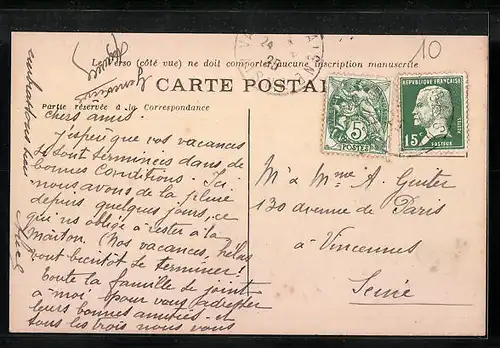 Le verso (côté vue) ne doit comporter aucune inscription manuscrite
CARTE POSTALE
Partie réservée à la Correspondance
10
5
POSTES
RÉPUBLIQUE FRANÇAISE
15
POSTES
PASTEUR
chers amis.
J'espère que vos vacances
se sont terminées dans de
bonnes conditions. Ici
nous avons de la pluie
depuis quelques jours, ce
qui nous oblige à rester à la
maison. (Nos vacances, hélas
vont bientôt se terminer!
Toute la famille se joint
à moi pour vous adresser
leurs bonnes amitiés et
tous les trois nous vous
embrassons bien
M & Mme A.
130 avenue de Paris
à Vincennes
Seine